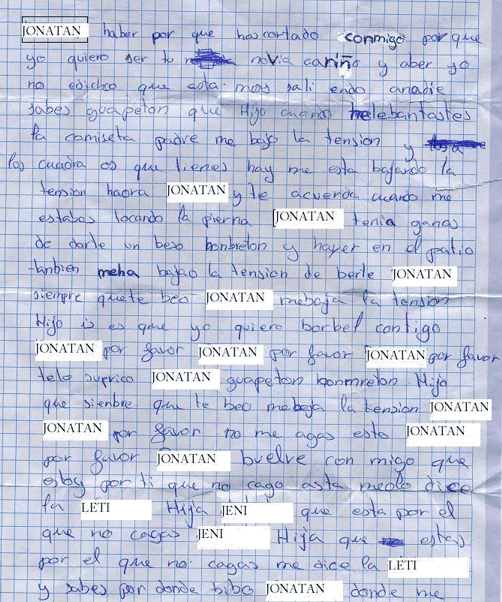 JONATAN haber por que has cortado conmigo por que
yo quiero ser tu novia cariño y aber yo
no e dicho que esta mos sali endo anadie
sabes guapeton que Hijo cuando telebantastes
la camiseta padre me bajo la tension y
los cuadra os que tienes hay me esta bajando la
tension haora JONATAN y te acuerda cuando me
estabas tocando la pierna JONATAN tenia ganas
de darte un beso bonbreton y hayer en el patio
tanbien meha bajao la tension de berte JONATAN
siempre quete beo JONATAN mebaja la tension
Hijo is es que yo quiero borbel contigo
JONATAN por favor JONATAN por favor JONATAN por favor
telo suprico JONATAN guapeton bonmreton Hijo
que sienbre que te beo mebaja la tension JONATAN
JONATAN por favor no me agas esto JONATAN
por favor JONATAN buelve con migo que
estoy por ti que no cago asta melo dice
la LETI Hija JENI que esta por el
que no cagas JENI Hija que estas
por el que no cagas me dice la LETI
y sabes por donde bibo JONATAN donde me